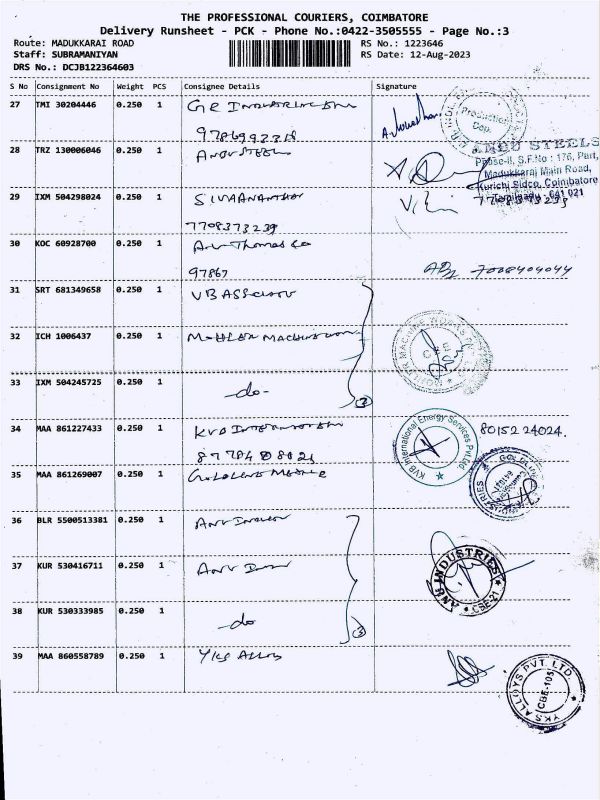 THE PROFESSIONAL COURIERS, COIMBATORE
Delivery Runsheet - PCK - Phone No.:0422-3505555 - Page No.:3
Route: MADUKKARAI ROAD RS No.: 1223646
Staff: SUBRAMANIYAN RS Date: 12-Aug-2023
DRS No.: DCJB122364603
S No Consignment No Weight PCS Consignee Details Signature
27 TMI 30204446 0.250 1 GR
Production
28 TRZ 130006046 0.250 1 ANBU STEELS
ANBU STEELS
Phase-II, S.F.No : 176, Part,
Madukkarai Main Road,
Kurichi Sidco, Coimbatore
Tamilnadu - 641 021
29 IXM 504298024 0.250 1
7708373239
30 KOC 60928700 0.250 1 A.V. Thomas Co
97867 7028404044
31 SRT 681349658 0.250 1 VB Associates
32 ICH 1006437 0.250 1
MACHINE WORKS
33 IXM 504245725 0.250 1 -do-
34 MAA 861227433 0.250 1 KVB International 80152 24024.
KVB International Energy Services Pvt Ltd
35 MAA 861269007 0.250 1
INDUSTRIES
36 BLR 5500513381 0.250 1
37 KUR 530416711 0.250 1
ANV INDUSTRIES
CBE-21
38 KUR 530333985 0.250 1 -do
39 MAA 860558789 0.250 1 YKS Alloys
YKS ALLOYS PVT. LTD.